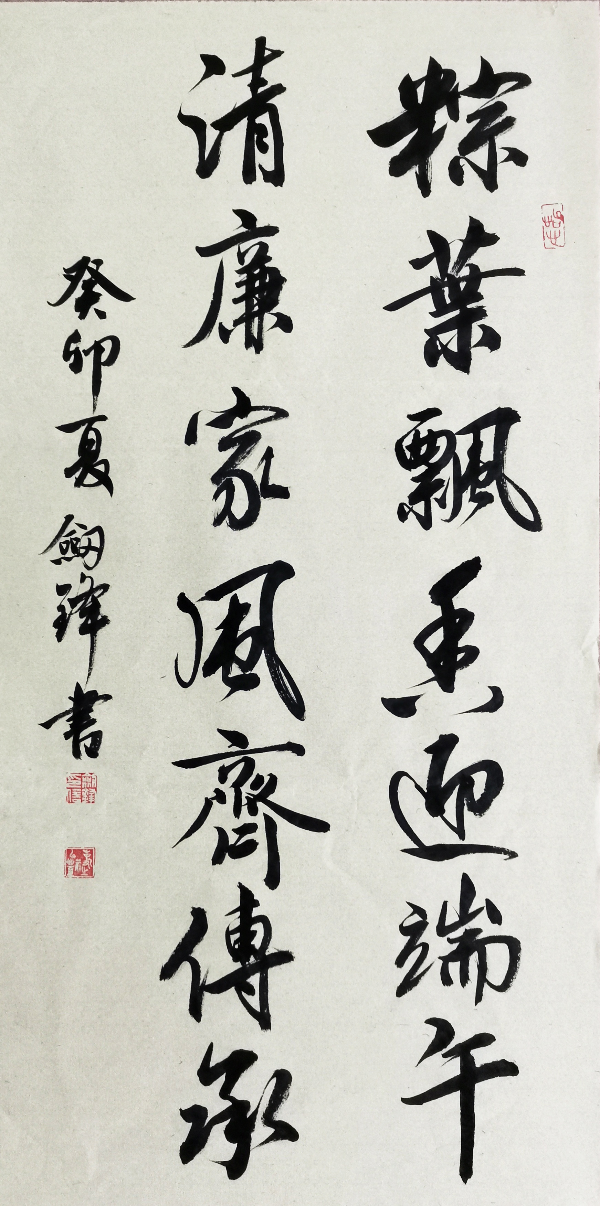 粽葉飄香迎端午
清廉家風齊傳承
癸卯夏劍鋒書